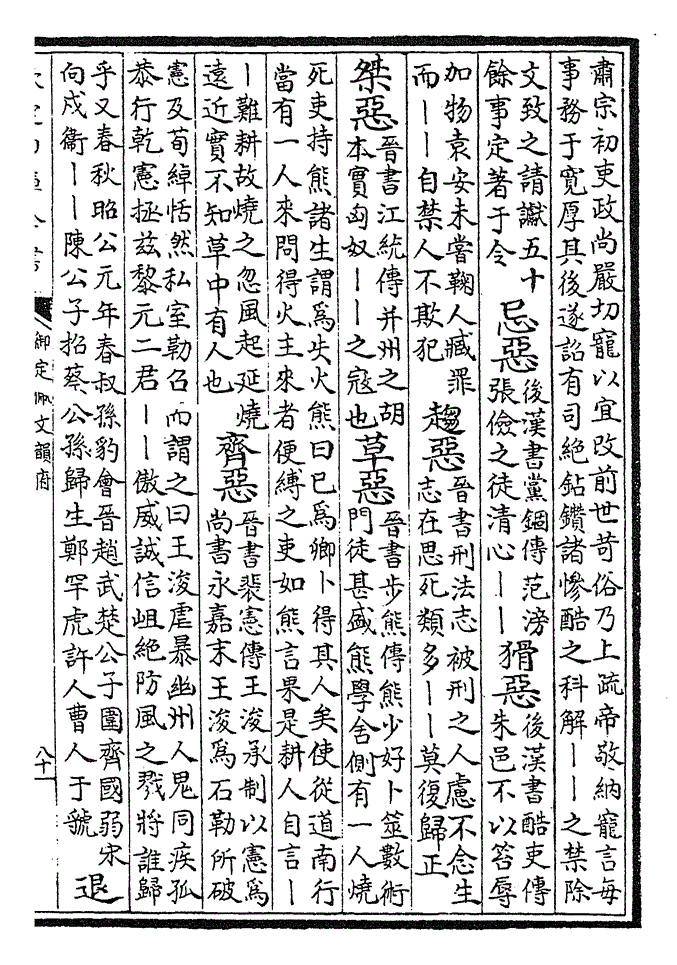 肅宗初吏政尚嚴切寵以宜改前世苛俗乃上疏帝敬納寵言每
事務于寬厚其後遂詔有司絶鉆鑽諸慘酷之科解||之禁除
文致之請讞五十
餘事定著于令
忌惡
後漢書黨錮傳范滂
張儉之徒清心||
猾惡
後漢書酷吏傳
朱邑不以笞辱
加物袁安未嘗鞠人臧罪
而||自禁人不欺犯
趨惡
晉書刑法志被刑之人慮不念生
志在思死類多||莫復歸正
桀惡
晉書江統傳并州之胡
本實匈奴||之寇也
草惡
晉書步熊傳熊少好卜筮數術
門徒甚盛熊學舍側有一人燒
死吏持熊諸生謂為失火熊曰已為卿卜得其人矣使從道南行
當有一人來問得火主來者便縛之吏如熊言果是耕人自言|
|難耕故燒之忽風起延燒
遠近實不知草中有人也
齊惡
晉書裴憲傳王浚承制以憲為
尚書永嘉末王浚為石勒所破
憲及荀綽恬然私室勒召而謂之曰王浚虐暴幽州人鬼同疾孤
恭行乾憲拯茲黎元二君||傲威誠信岨絶防風之戮將誰歸
乎又春秋昭公元年春叔孫豹會晉趙武楚公子圍齊國弱宋
向戌衛||陳公子招蔡公孫歸生鄭罕虎許人曹人于虢
退
欽定四庫全書
御定佩文韻府
八十一